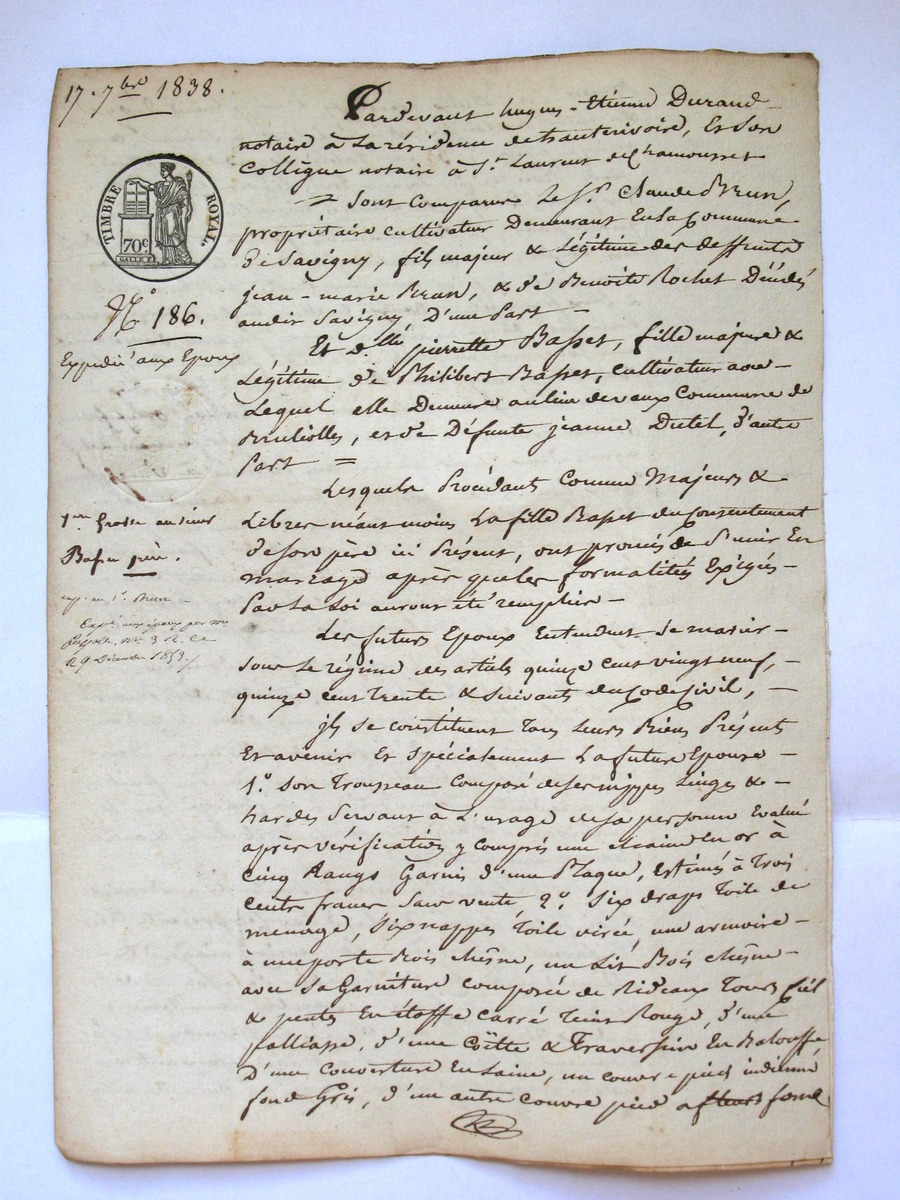 17. 7bre 1838.
TIMBRE ROYAL.
70c
No 186.
Expedié aux Epoux
1ere Grosse au sieur
Basset père.
exp. au sr. Brun
29 Décembre 1853
Pardevant hugues-Etienne Durand
notaire à La résidence de hauterivoire, Et son
Collègue notaire à St. Laurent de Chamousset
= Sont Comparus Le Sr. Claude Brun,
propriétaire cultivateur Demeurant En La Commune
De Savigny, fils majeur & Légitime des deffunts
jean-marie Brun, & de Benoite Rochet Décédés
audit Savigny, D'une Part -
Et dlle pierrette Basset, fille majeure &
Légitime de Philibert Basset, cultivateur avec
Lequel elle Demeure au lieu de vaux Commune de
Brullioles, et de Défunte jeanne Dutel, D'autre
Part =
Lesquels Procédants Comme Majeurs &
Libres néanmoins La fille Basset du Consentement
de son père ici Présent, ont promis de S'unir En
mariage après que les formalités Exigées
Par La Loi auront été remplies -
Les futurs Epoux Entendent Se marier
sous Le régime des articles quinze cent vingt neuf,
quinze cent Trente & suivants du Code Civil, -
jls se constituent Tous Leurs Biens Présents
Et avenir Et spécialement La future Epouse -
1o. Son Trousseau Composé de ses nippes Linges & -
hardes Servant à L'usage de sa personne Evalué
après vérification y compris une chaine En or à
Cinq Rangs Garnis d'une Plaque, Estimés à Trois
Cents francs Sans vente 2o. Six draps Toile de
menage, Six nappes Toile virée une armoire -
à une porte Bois chêne, un Lit Bois chêne -
avec sa Garniture composée de Rideaux Tours Ciel
& pentes En étoffe carré Teint Rouge, D'une
palliasse, d'une Coëtte & Traversin En Balouffe
D'une Couverture En Laine, un couvre pied indienne
fond Gris, d'un autre couvre pied a fleurs fond